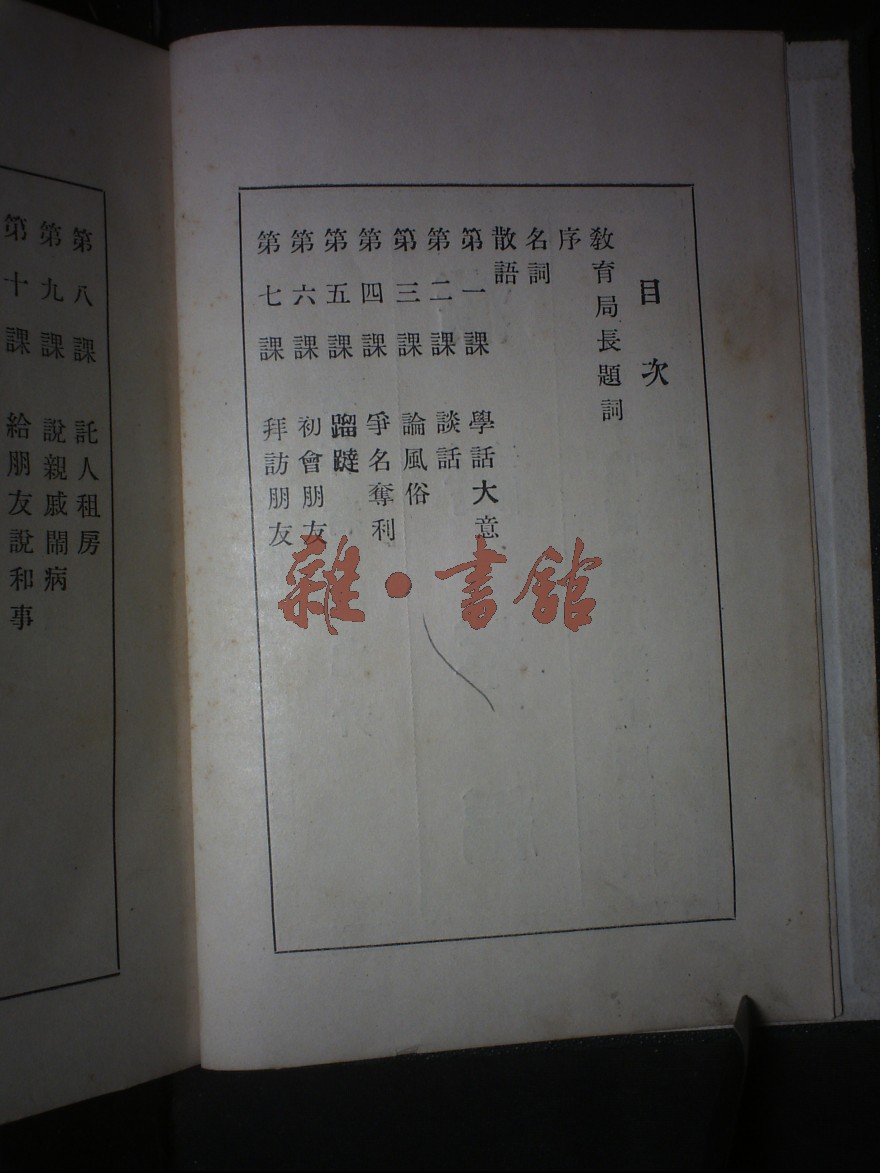 目次
敎育局長題詞
序
名詞
散語
第一課 學話大意
第二課 談話
第三課 論風俗
第四課 爭名奪利
第五課 蹓躂
第六課 初會朋友
第七課 拜訪朋友
第八課 託人租房
第九課 說親戚鬧病
第十課 給朋友說和事
雜·書館